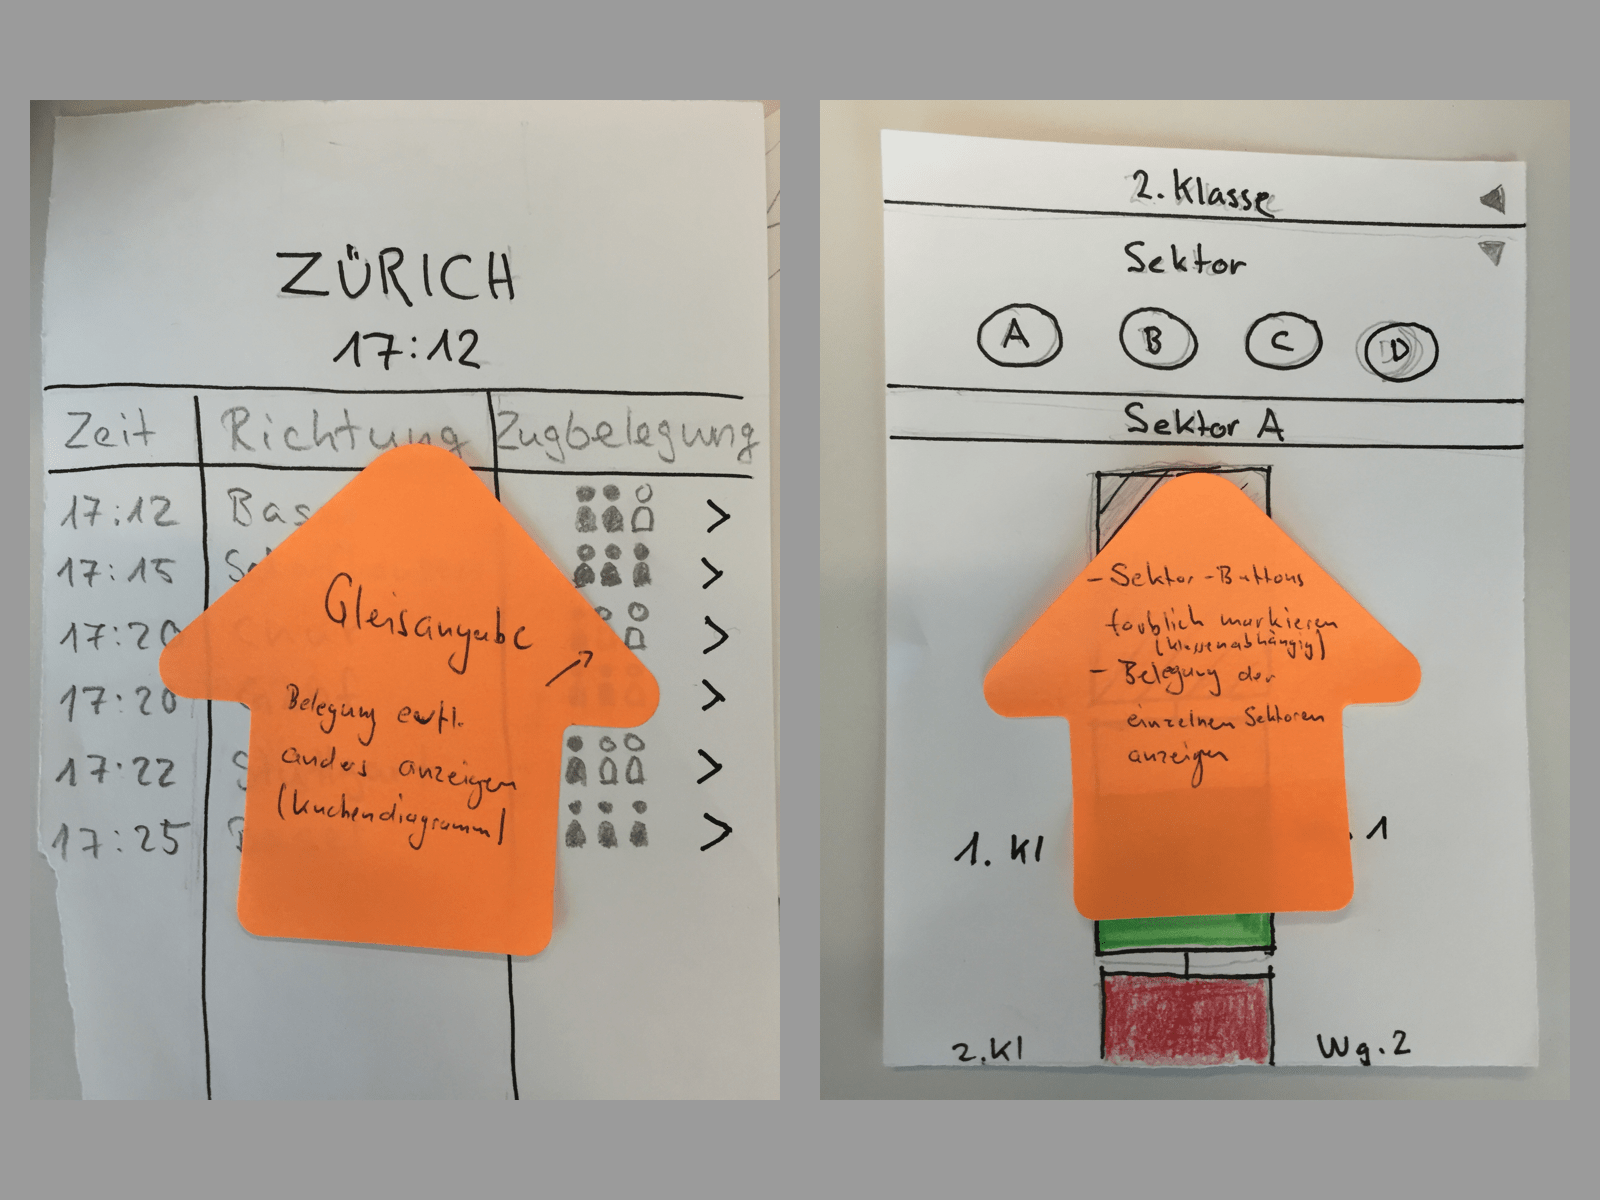 ZÜRICH
17:12
Zeit Richtung Zugbelegung
17:12 Bas >
17:15 >
17:20 >
17:20 >
17:22 >
17:25 >
Gleisangabe
Belegung evtl.
anders anzeigen
(Kuchendiagramm)
2. Klasse
Sektor
A B C D
Sektor A
- Sektor-Buttons
farblich markieren
(klassenabhängig)
- Belegung der
einzelnen Sektoren
anzeigen
1. Kl . 1
2. Kl Wg. 2